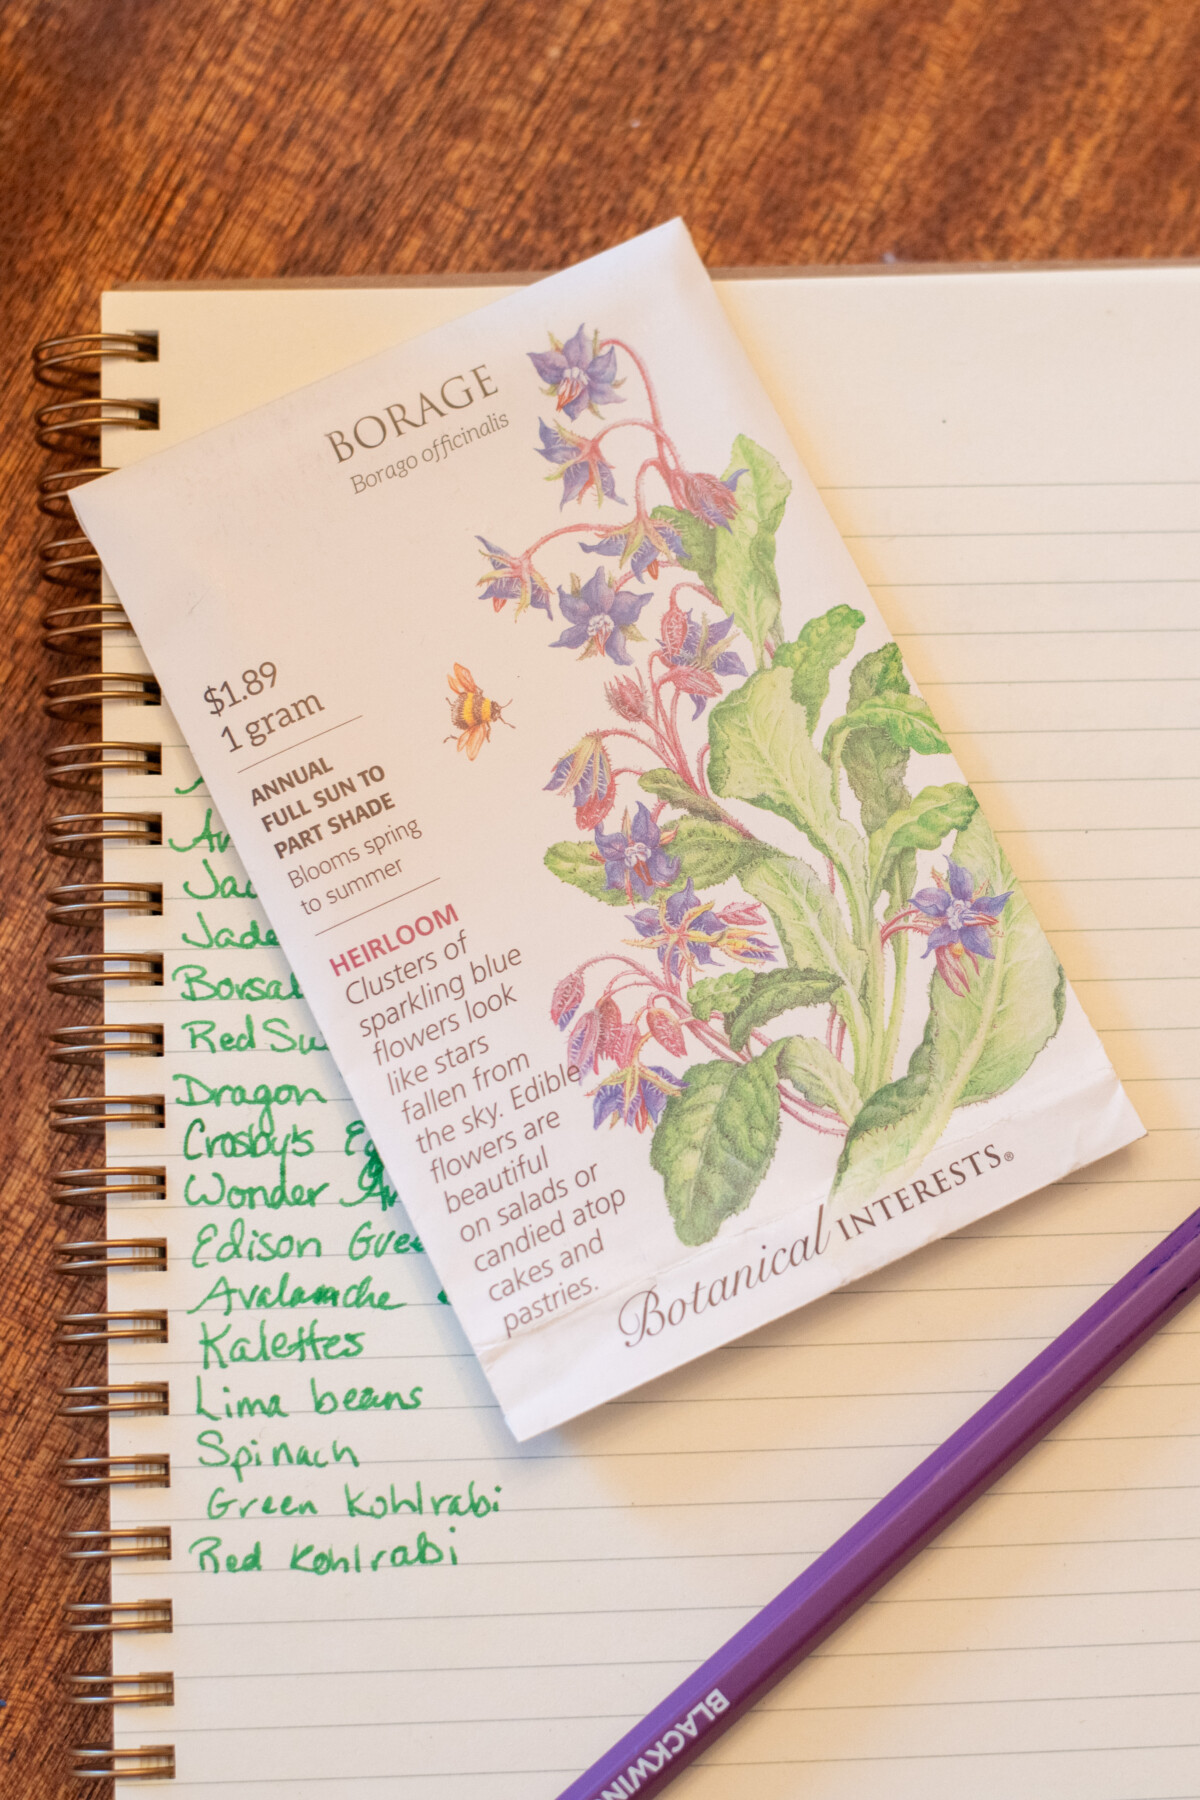 BORAGE
Borago officinalis
$1.89
1 gram
ANNUAL
FULL SUN TO
PART SHADE
Blooms spring
to summer
HEIRLOOM
Clusters of
sparkling blue
flowers look
like stars
fallen from
the sky. Edible
flowers are
beautiful
on salads or
candied atop
cakes and
pastries.
Botanical INTERESTS®
Jade
Red
Dragon
Crosby's
Wonder
Edison
Avalanche
Kalettes
Lima beans
Spinach
Green Kohlrabi
Red Kohlrabi
BLACKWIN